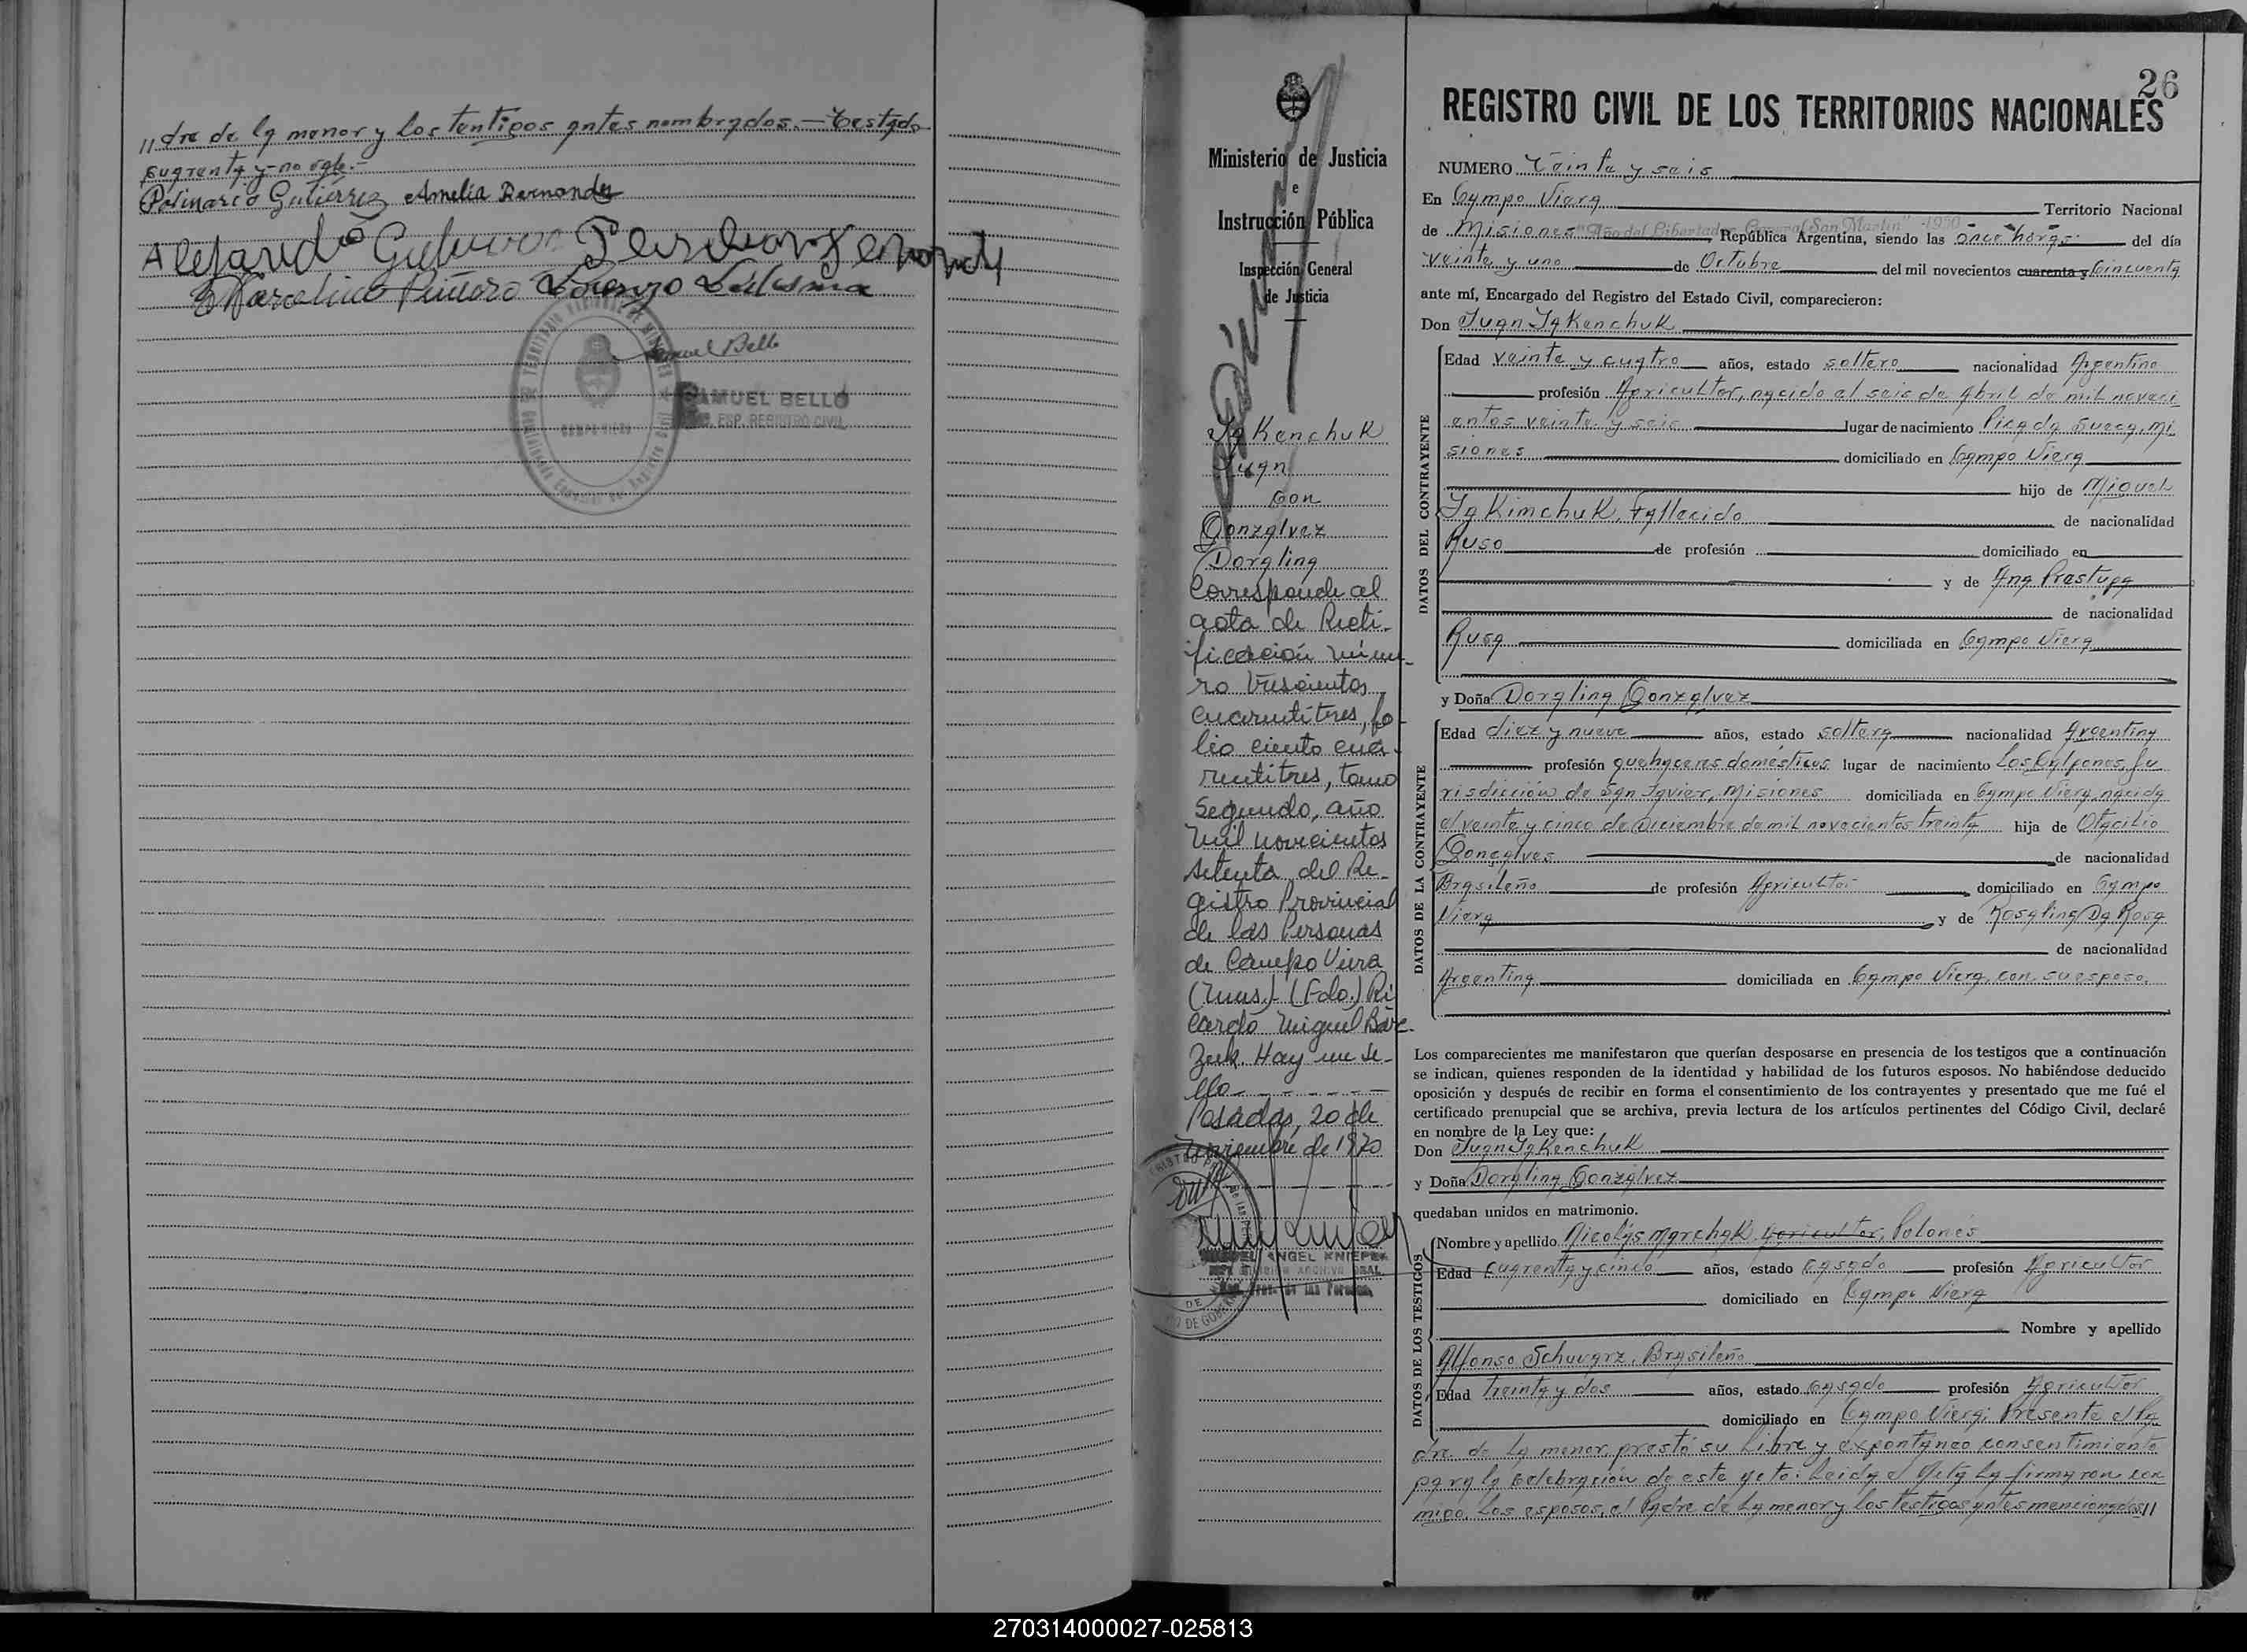 "dre de la menor y los tentigos antes nombrados.— Testado
cuarenta y no vale.-
Polinario Gutiérrez Amelia Bernandez
Alejandro
Marcelino Piñero Lorenzo Ledesma
Samuel Bello
SAMUEL BELLO
ESP. REGISTRO CIVIL
CAMPO VIERA
Ministerio de Justicia
e
Instrucción Pública
Inspección General
de Justicia
IaKenchuK
Juan
con
Gonzalvez
Doralina
Corresponde al
acta de Recti-
ficación núme-
ro trescientos
cuarentitres, fo-
lio ciento cua-
rentitres, tomo
Segundo, año
mil novecientos
setenta del Re-
gistro Provincial
de las Personas
de Campo Viera
(Mnes.)- (Fdo.) Ri
cardo Miguel Bar
zuk. Hay un se-
llo
Posadas, 20 de
noviembre de 1970
26
REGISTRO CIVIL DE LOS TERRITORIOS NACIONALES
NUMERO Veinte y seis
En Campo Viera Territorio Nacional
de Misiones "Año del Libertador General San Martín" 1950, República Argentina, siendo las once horas del día
veinte y uno de Octubre del mil novecientos cuarenta y Cincuenta
ante mí, Encargado del Registro del Estado Civil, comparecieron:
Don Juan IaKenchuK
DATOS DEL CONTRAYENTE
Edad veinte y cuatro años, estado soltero nacionalidad Argentino
profesión Agricultor, nacido el seis de Abril de mil noveci
entos veinte y seis lugar de nacimiento Picada Sueca, Mi
siones domiciliado en Campo Viera
hijo de Miguel
IaKimchuK, Fallecido de nacionalidad
Ruso de profesión domiciliado en
y de Ana Prastupa
de nacionalidad
Rusa domiciliada en Campo Viera
y Doña Doralina Gonzalvez
DATOS DE LA CONTRAYENTE
Edad diez y nueve años, estado soltera nacionalidad Argentina
profesión quehaceres domésticos lugar de nacimiento Los Galpones, Ju
risdicción de San Javier, Misiones domiciliada en Campo Viera, nacida
el veinte y cinco de Diciembre de mil novecientos treinta hija de Otacilio
Gonçalves de nacionalidad
Brasileño de profesión Agricultor domiciliado en Campo
Viera y de Rosalina Da Rosa
de nacionalidad
Argentina domiciliada en Campo Viera, con su esposo.
Los comparecientes me manifestaron que querían desposarse en presencia de los testigos que a continuación
se indican, quienes responden de la identidad y habilidad de los futuros esposos. No habiéndose deducido
oposición y después de recibir en forma el consentimiento de los contrayentes y presentado que me fué el
certificado prenupcial que se archiva, previa lectura de los artículos pertinentes del Código Civil, declaré
en nombre de la Ley que:
Don Juan IaKenchuK
y Doña Doralina Gonzalvez
quedaban unidos en matrimonio.
DATOS DE LOS TESTIGOS
Nombre y apellido Nicolás Marchak, Agricultor, Polonés
Edad cuarenta y cinco años, estado Casado profesión Agricultor
domiciliado en Campo Viera
Nombre y apellido
Alfonso Schuvarz, Brasileño
Edad treinta y dos años, estado Casado profesión Agricultor
domiciliado en Campo Viera; Presente el Pa
dre de la menor, prestó su libre y expontaneo consentimiento
para la celebración de este acto: Leida el Acta la firmaron con
migo. Los esposos, el Padre de la menor y los testigos antes mencionados//
270314000027-025813